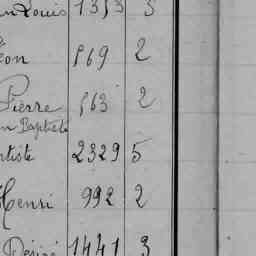 Louis 1353 5
éon 569 2
Pierre 563 2
n Baptiste
tiste 2329 5
Henri 992 2
Désiré 1441 3